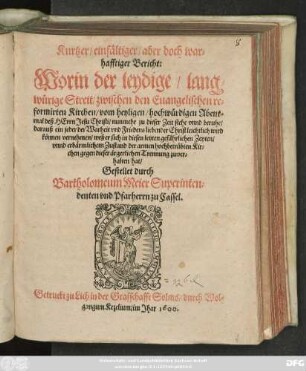 Kurtzer/ einfältiger/ aber doch war-
hafftiger Bericht:
Worin der leydige/ lang
wirige Streit/ zwischen den Euangelischen re-
formirten Kirchen/ vom heyligen/ hochwürdigen Abend-
mal deß HErrn Jesu Christi/ nunmehr zu dieser Zeit stehe vnnd beruhe/
darauß ein jeder der Warheit vnd Friedens liebender Christ leichtlich wird
können vernehmen/ wes er sich in diesen letzten gefährlichen Zeyten/
vnnd erbärmlichem Zustand der armen hochbetrübten Kir-
chen gegen dieser ärgerlichen Trennung zuver-
halten hat/
Gestellet durch
Bartholomeum Meier Superinten-
denten vnd Pfarherrn zu Cassel.
Getruckt zu Lich in der Graffschafft Solms/ durch Wol-
gangum Kezelium/ im Jhar 1600.